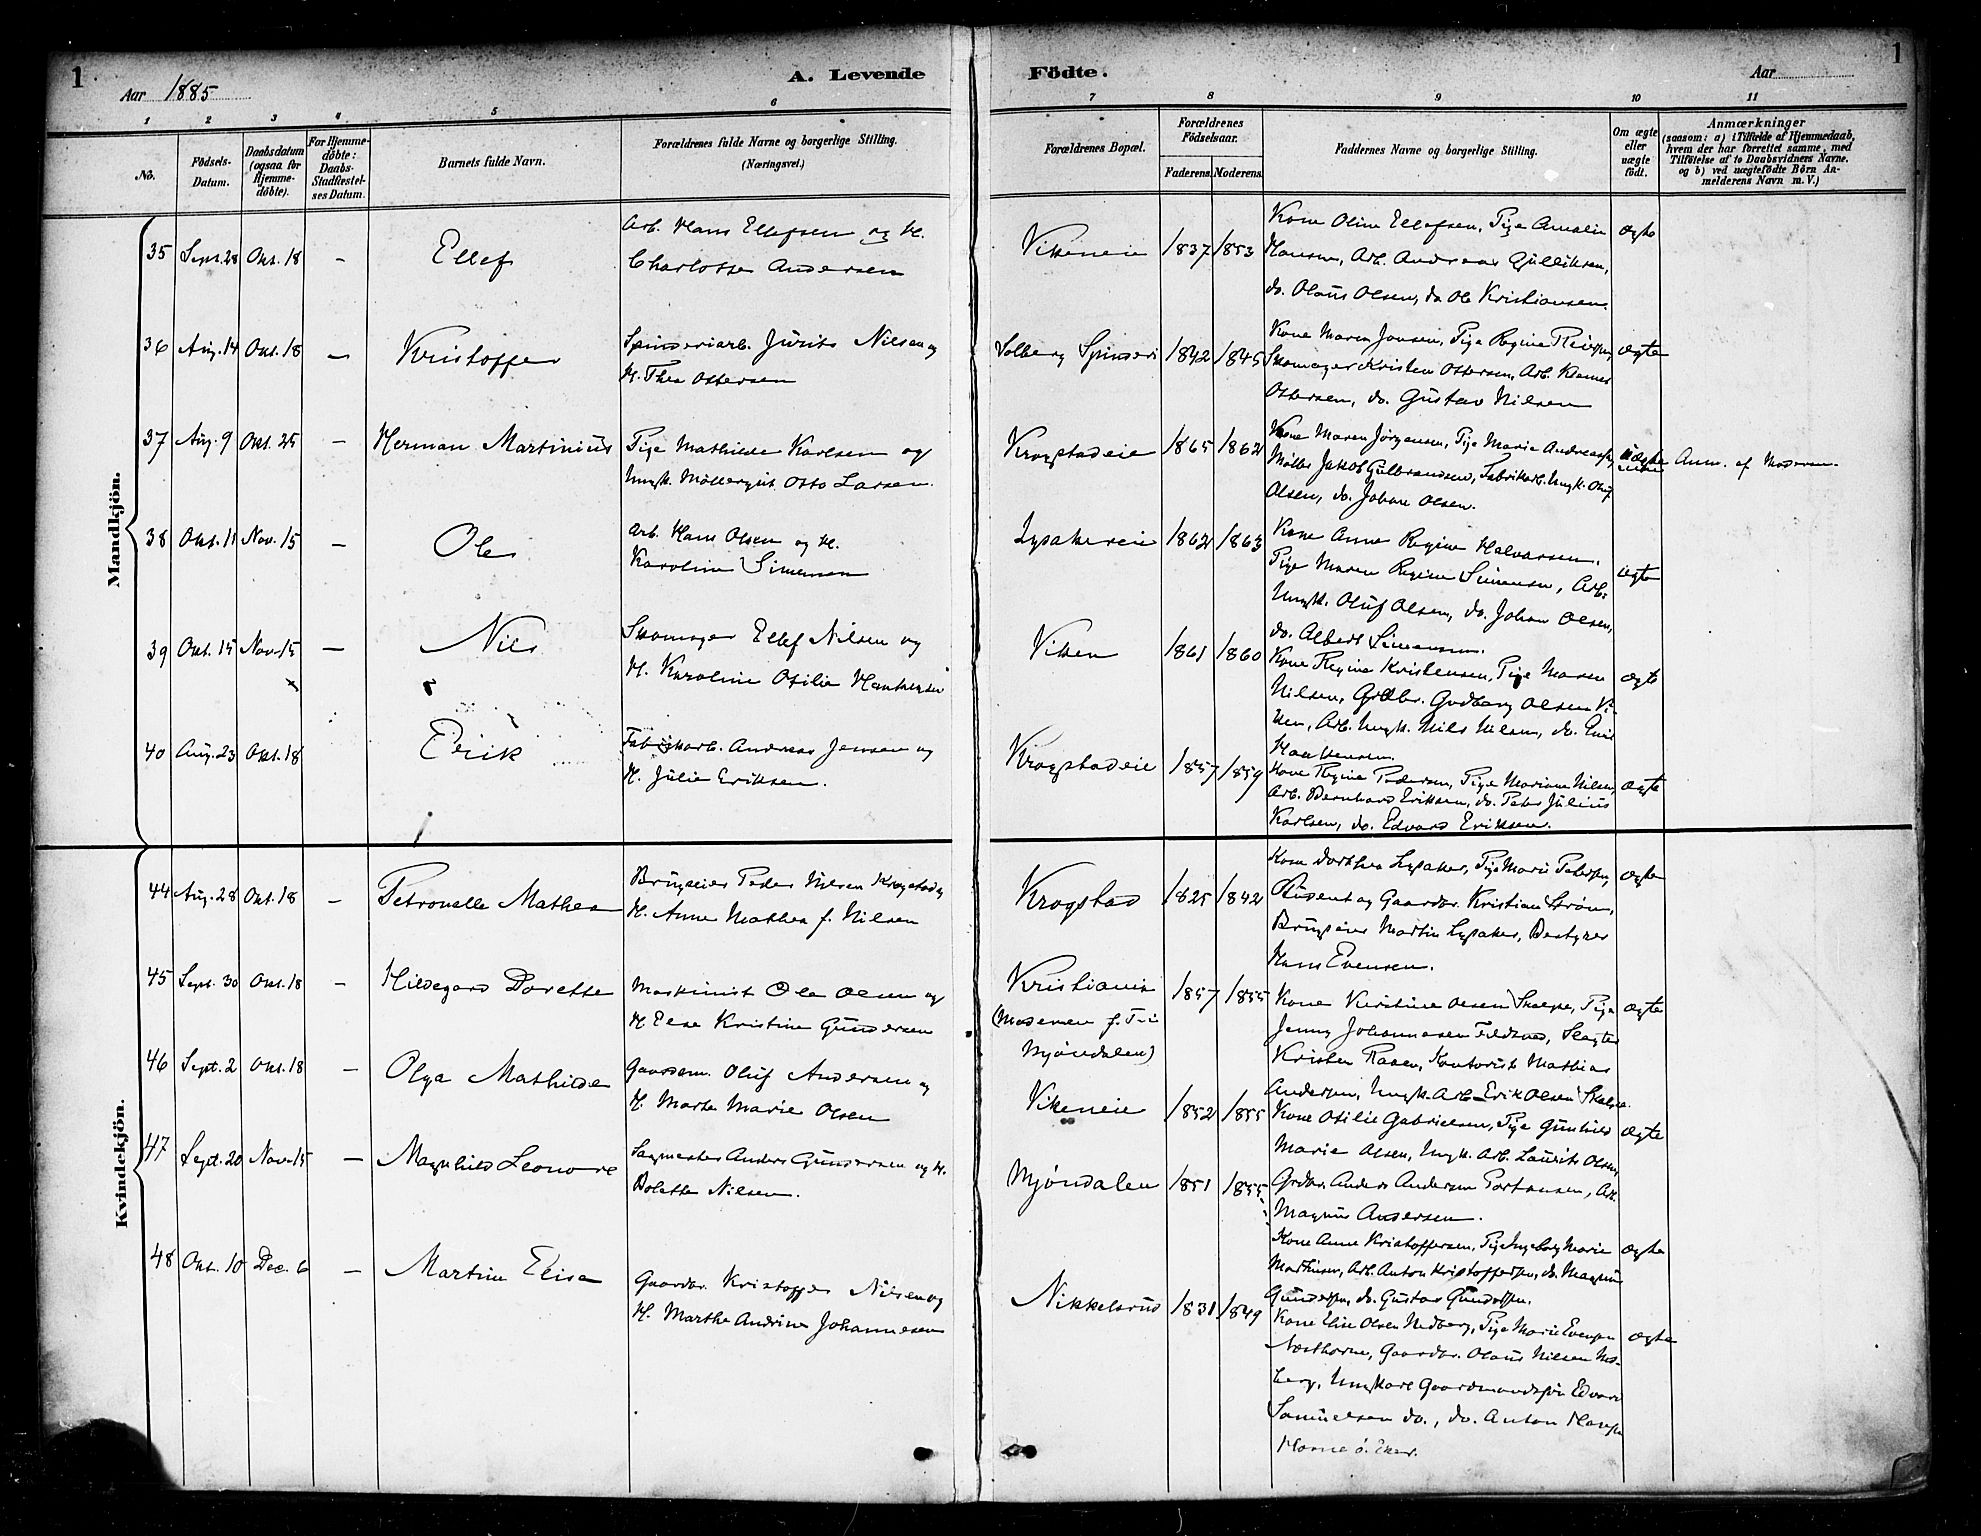 1
A. Levende
Aar 1885
1 2 3 4 5 6
No.
Födsels-Datum.
Daabsdatum (ogsaa for Hjemme-døbte).
For Hjemme-døbte: Daabs-Stadfæstel-ses Datum.
Barnets fulde Navn.
Forældrenes fulde Navne og borgerlige Stilling.
(Næringsvei.)
Mandkjön.
35 Sept. 28 Okt. 18 – Ellef
Arb. Hans Ellefsen og H.
Charlotte Andersen
36 Aug. 14 Okt. 18 – Kristoffer
Spinderiarb. Jürits Nilsen og
H. Thea Ottersen
37 Aug. 9 Okt. 25 – Herman Martinius
Pige Mathilde Karlsen og
Ungk. Møllergut Otto Larsen.
38 Okt. 11 Nov. 15 – Ole
Arb. Hans Olsen og H.
Karoline Simensen
39 Okt. 15 Nov. 15 – Nils
Skomager Ellef Nilsen og
H. Karoline Otilie
40 Aug. 23 Okt. 18 Erik
Fabrikarb. Andreas Jensen og
H. Julie Eriksen.
Kvindekjön.
44 Aug. 28 Okt. 18 – Petronelle Mathea
Brugseier Peder Nilsen Krogstad og
H. Anne Mathea f. Nilsen
45 Sept. 30 Okt. 18 – Hildegard Dorette
Maskinist Ole Olsen og
H. Else Kristine Gundersen
46 Sept. 2 Okt. 18 – Olga Mathilde
Gaardm. Oluf Andersen og
H. Marte Marie Olsen
47 Sept. 20 Nov. 15 – Magnhild Leonore
Sagmester Anders Gundersen og H.
Bolette Nilsen.
48 Okt. 10 Dec. 6 – Martine Elise
Gaardbr. Kristoffer Nilsen og
H. Marthe Andrine Johannesen
1
Födte.
Aar
7 8 9 10 11
Forældrenes Bopæl.
Forældrenes Fødselsaar.
Faderens. Moderens.
Faddernes Navne og borgerlige Stilling.
Om ægte eller uægte født.
Anmærkninger
(saasom: a) i Tilfælde af Hjemmedaab, hvem der har forrettet samme, med Tilføielse af to Daabsvidners Navne. og b) ved uægtefødte Børn An-melderens Navn m. V.)
Vikeneie 1837 1853
Kone Oline Ellefsen, Pige Amalie
Hansen, Arb. Andreas Gulliksen,
do. Olaus Olsen, do Ole Kristiansen.
ægte
Solberg Spinderi 1842 1845
Kone Maren Jonsen, Pige Regine
Skomager Kristen Ottersen, Arb.
Ottersen, do. Gustav Nilsen
ægte
Krogstadeie 1865 1862
Kone Maren Jørgensen, Pige Marie
Møller Jakob Gulbrandsen, Fabrikarb. Ungk. Oluf
Olsen, do. Johan Olsen.
uægte
Anm. af Moderen.
Lysakereie 1862 1863
Kone Anne Regine Halvorsen.
Pige Maren Regine Simensen, Arb.
Ungk. Oluf Olsen, do. Johan Olsen,
do. Albert Simensen.
ægte
Viken 1861 1860
Kone Regine Kristensen, Pige Maren
Nilsen, Grdbr. Gudberg Olsen Vi-
ken, Arb. Ungk. Nils Nilsen, do. Emil
ægte
Krogstadeie 1857 1859
Kone Regine Pedersen, Pige Mariane Nilsen,
Arb. Bernhard Eriksen, do. Peter Julius
Karlsen, do. Edvard Eriksen.
ægte
Krogstad 1825 1842
Kone Dorthea Lysaker, Pige Marie Petersen,
Student og Gaardbr. Kristian Strøm,
Brugseier Martin Lysaker, Bestyrer
Hans Evensen.
ægte
Kristiania
(Moderen f. Tid
Mjøndalen)
1857 1855
Kone Kirstine Olsen Skalpe, Pige
Jenny Johannesen
Kristen Raaen, Kontorist Mathias
Andersen, Ungk. Arb. Erik Olsen Skalpe.
ægte
Vikeneie 1852 1855
Kone Otilie Gabrielsen, Pige Gunhild
Marie Olsen, Ungk. Arb. Laurits Olsen,
Grdbr. Anders Andersen Arb.
Magnus Andersen.
ægte
Mjøndalen 1851 1855
Kone Anne Kristoffersen, Pige Ingeborg Marie
Mathisen, Arb. Anton Kristoffersen, do. Magnus
Gundersen, do. Gustav Gundersen.
ægte
Nikkelsrud 1831 1849
Kone Elise Olsen Nedberg, Pige Marie Evensen
Gaardbr. Olaus Nilsen Ned-
berg, Ungkarl Gaardmandssøn Edvard
Samuelsen do., do. Anton
Horne ø. Eker.
ægte